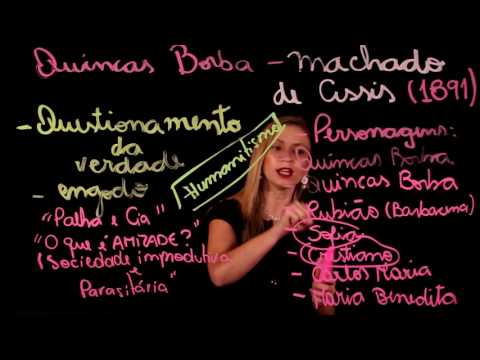 Quincas Borba - Machado
de Assis (1891)
- Questionamento
da
verdade
- engodo
"Palha e Cia"
"O que é AMIZADE?"
(Sociedade improdutiva
e
Parasitária"
Humanitismo
Personagens:
Quincas Borba
Quincas Borba
Rubião (Barbacena)
Sofia
- Cristiano
- Carlos Maria
- Maria Benedita